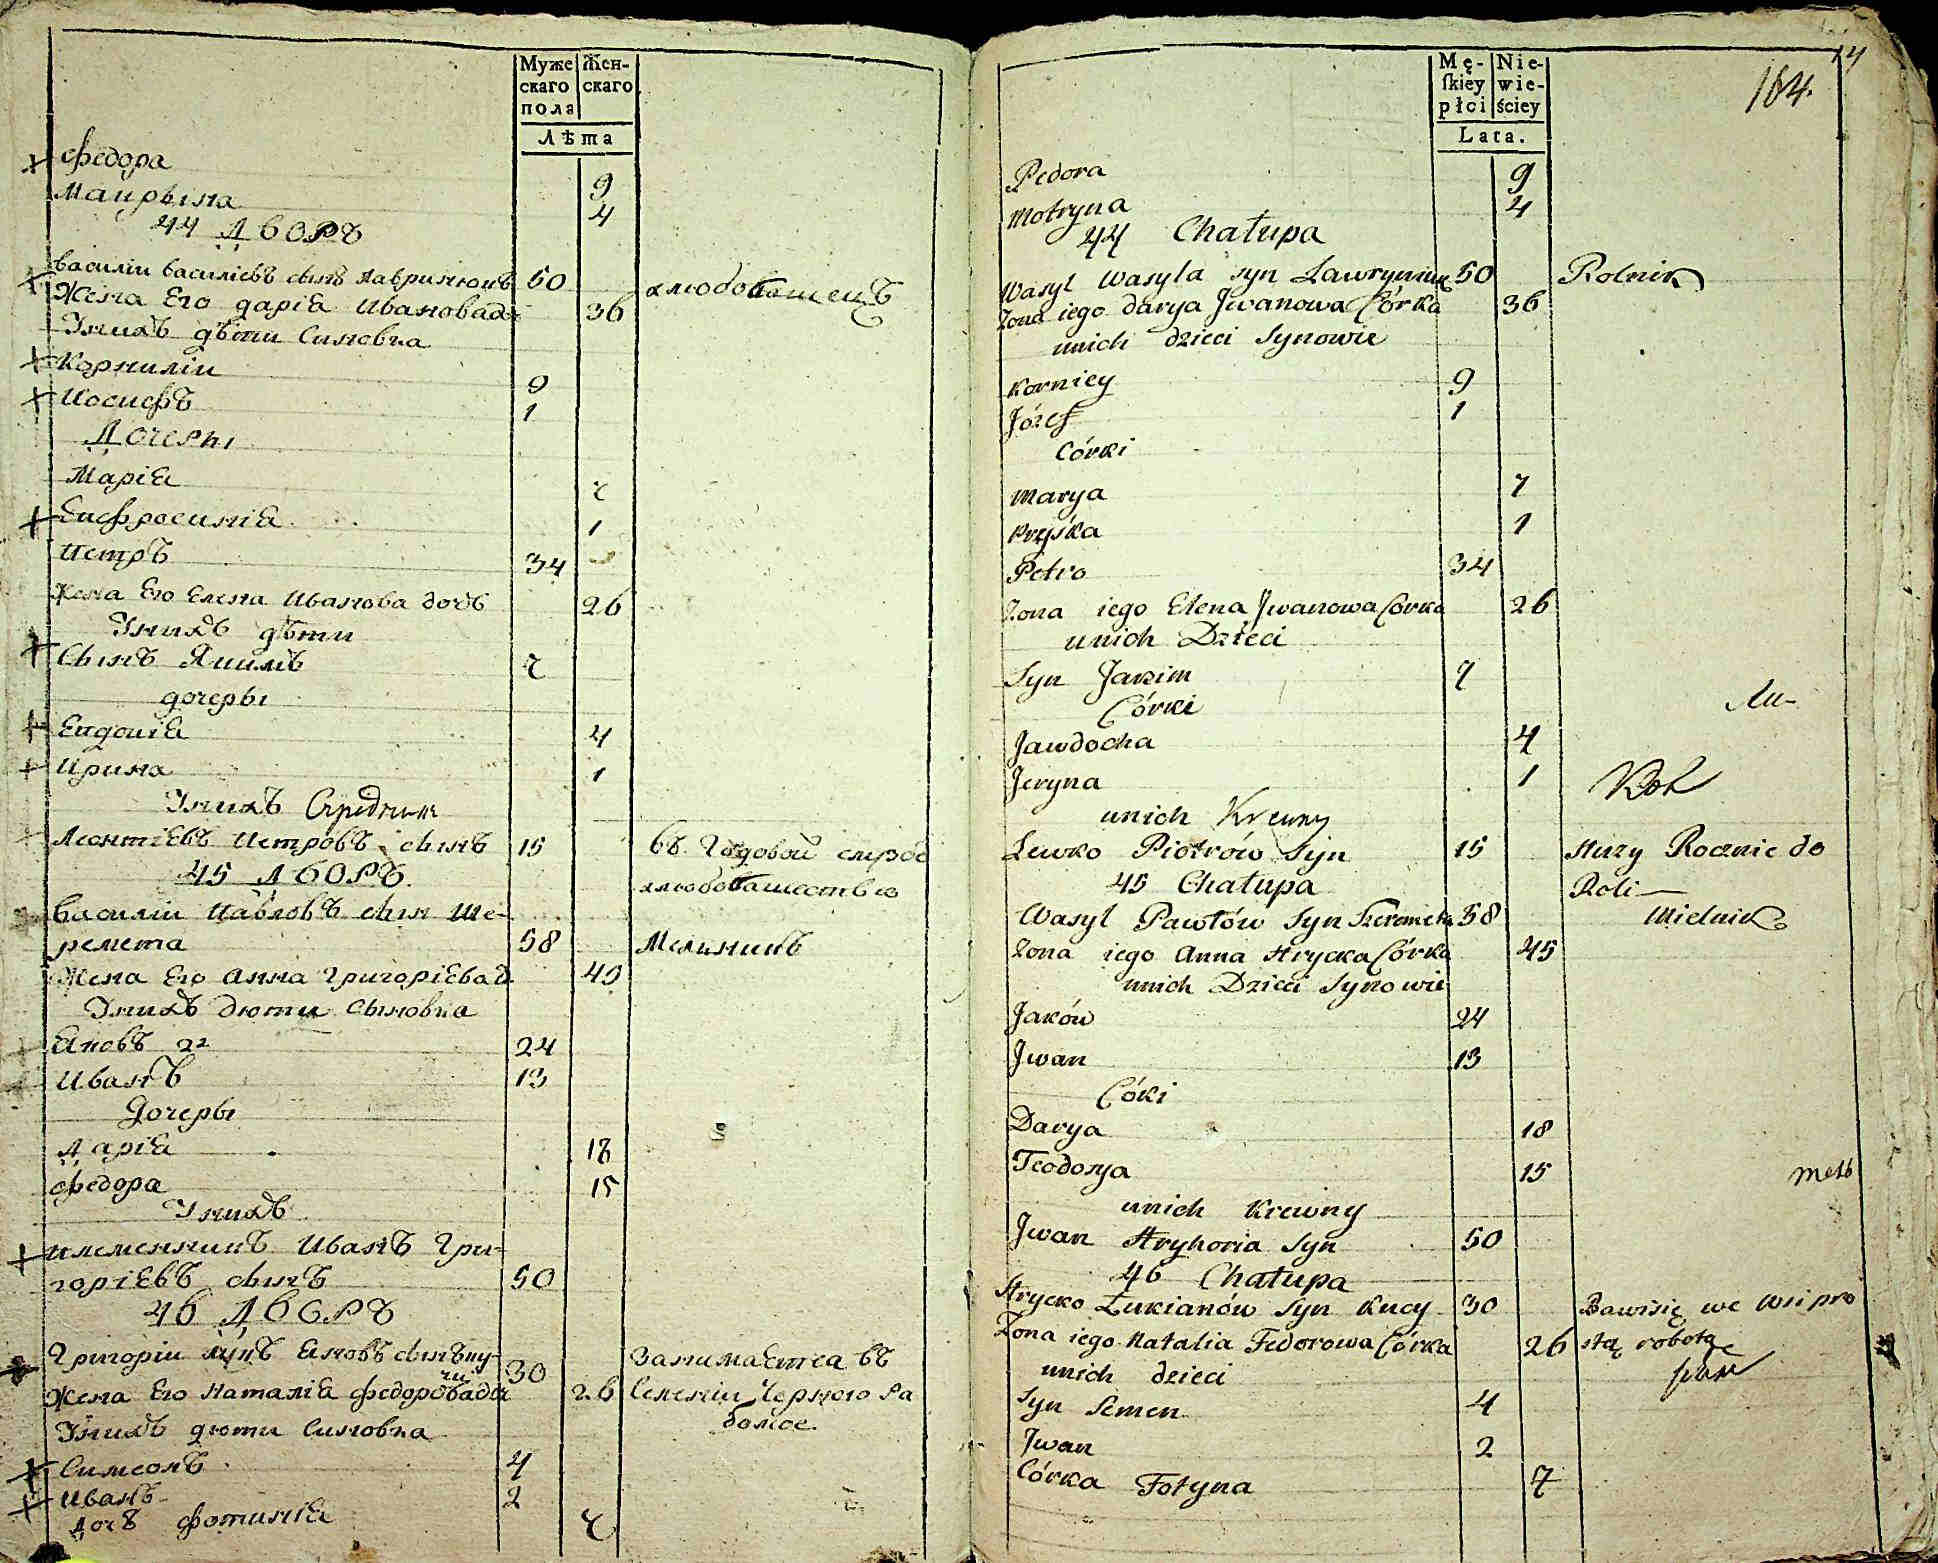 Муже
скаго
пола
Жен-
скаго
Лѣта
федора 9
Матрына 4
44 Дворъ
василіи василіевъ сынъ лавринюкъ 50 хлюбопашецъ
Жена Его дарія Ивановад 36
Унихъ дѣти Синовка
Корниліи 9
Иосифъ 1
Дочеры
Марія 7
Евфросинія 1
Петръ 34
Жена Его Елена Иванова дочь 26
Унихъ дѣти
Сынъ Якимъ 7
дочеры
Евдокія 4
Ирина 1
Унихъ
Леонтіевъ Петровъ сынъ 15 въ Годовой
45 Дворъ хлюбопашество
василіи Павловъ сын Ше-
ремета 58 Мельникъ
Жена Его Анна Григоріевад 45
Унихъ дюти Сыновка
Яковъ 24
Иванъ 13
Дочеры
Дарія 18
федора 15
Унихъ
племенникъ Иванъ Гри-
горіевъ сынъ 50
46 Дворъ
Григоріи 30 занимаетса въ
Жена Его Наталія федоровадч 26 Селеніи Черного Ра
Унихъ дюти Синовка ботое
Симеонъ 4
Иванъ 2
Дочъ фотинія 7
14
164.
Mę-
skiey
płci
Nie-
wie-
ściey
Lata.
Pedora 9
Motryna 4
44 Chałupa
Wasyl Wasyla syn Ławryniuk 50 Rolnik
Żona iego Darya Jwanowa Córka 36
unich dzieci Synowie
Korniey 9
Józef 1
Córki
Marya 7
Pryśka 1
Petro 34
Żona iego Elena Jwanowa Córka 26
unich Dzieci
Syn Jakim 7
Córki
Jawdocha 4
Jeryna 1
unich Krewny
Lewko Piotrów Syn 15 służy Rocznie do
45 Chałupa Roli
Wasyl Pawłów Syn Szeremeta 58 Mielnik
Żona iego Anna Hrycka Córka 45
unich Dzieci Synowie
Jaków 24
Jwan 13
Córki
Darya 18
Teodosya 15
unich Krewny
Jwan Hryhoria Syn 50
46 Chałupa
Hrycko Łukianów Syn Kucy 30 Bawisię we wsi pro
Żona iego Natalia Fedorowa Córka 26 stą robotą
unich dzieci
Syn Semen 4
Jwan 2
Córka Fotyna 7